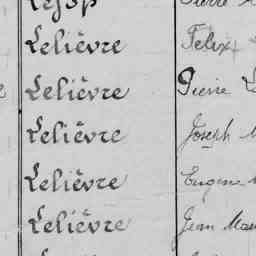 Lelièvre Felix
Lelièvre Pierre
Lelièvre Joseph
Lelièvre Eugene
Lelièvre Jean